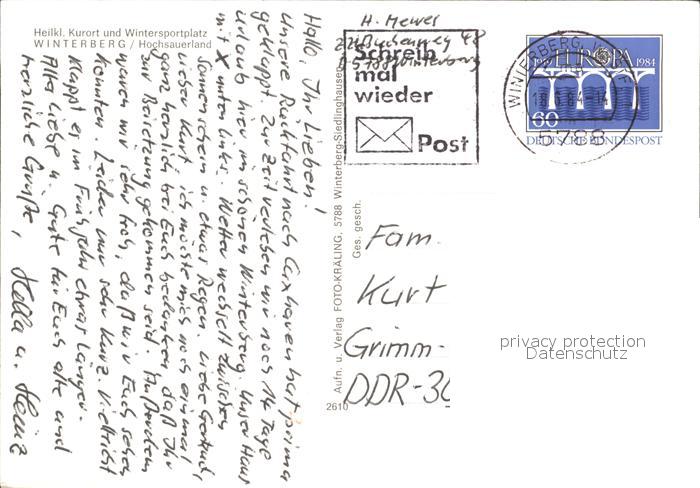 Heilkl. Kurort und Wintersportplatz
WINTERBERG / Hochsauerland
Hallo, Ihr Lieben!
Unsere Rückfahrt nach Cuxhaven hat prima
geklappt. Zur Zeit verleben wir noch 14 Tage
Urlaub hier im schönen Winterberg. Unser Haus
mit X unten links. Wetter wechselt zwischen
Sonnenschein u. etwas Regen. Liebe Gertrud,
lieber Kurt, ich möchte mich noch einmal
ganz herzlich bei Euch bedanken, daß Ihr
zur Beisetzung gekommen seid. Außerdem
waren wir sehr froh, daß wir Euch sehen
konnten. Leider nur sehr kurz. Vielleicht
klappt es im Frühjahr etwas länger.
Alles Liebe u. Gute für Euch alle und
herzliche Grüße, Hella u. Heinz
2610
Aufn. u. Verlag FOTO-KRÄLING, 5788 Winterberg-Siedlinghausen
Ges. gesch.
H. Mewer
48
D 5788 Winterberg
Schreib
mal
wieder
Post
WINTERBERG
18.6.84-14
5788
EUROPA
1959 1984
60
DEUTSCHE BUNDESPOST
Fam.
Kurt
Grimm-
DDR-30
privacy protection
Datenschutz